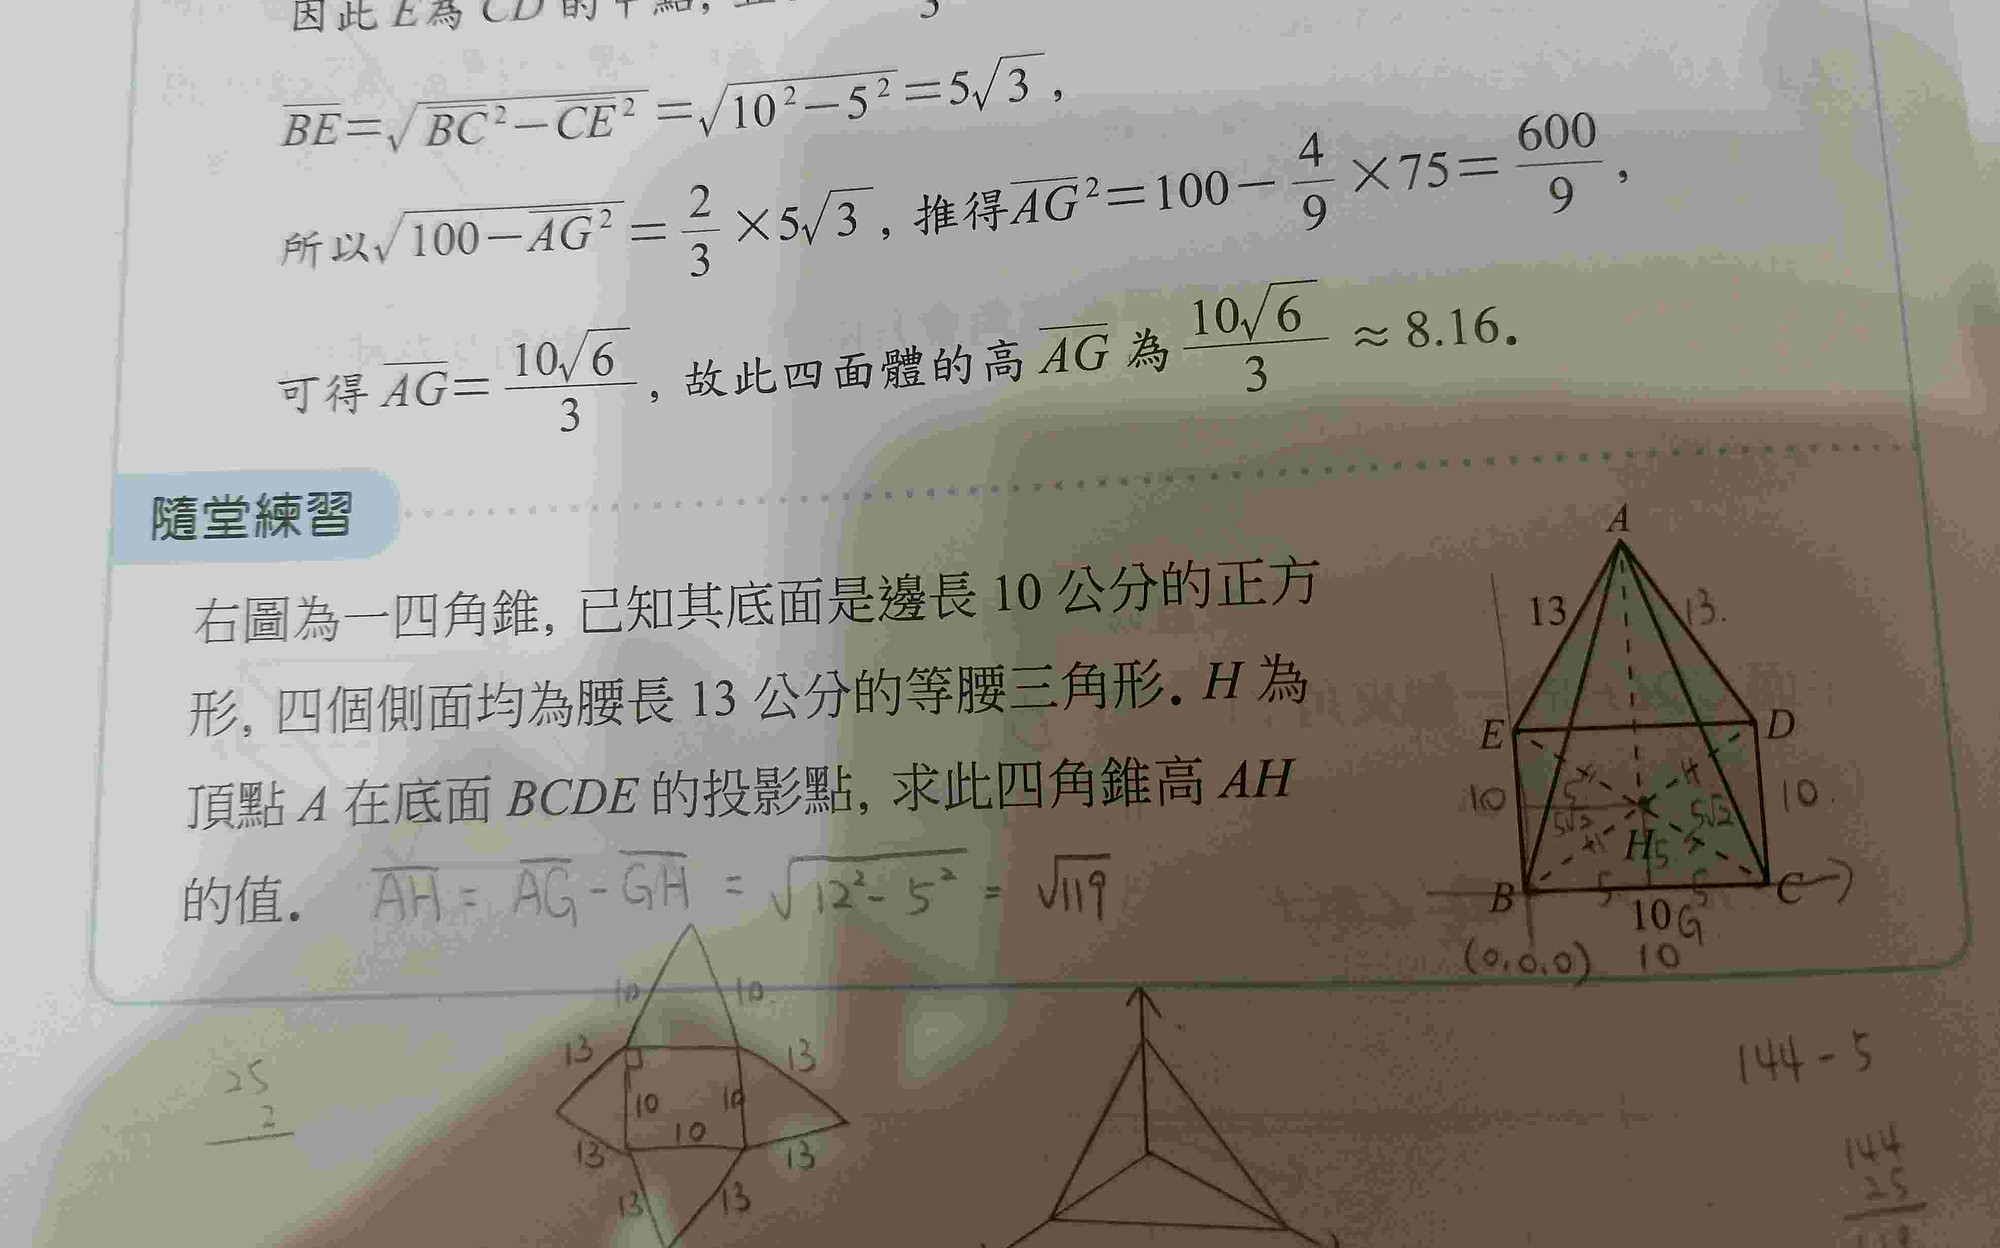 因此 E 為 CD 的中點,
3
BE=√(BC²−CE²)=√(10²−5²)=5√3,
所以√(100−AG²)=2/3×5√3, 推得AG²=100−4/9×75=600/9,
可得 AG=10√6/3, 故此四面體的高 AG 為 10√6/3 ≈8.16.
隨堂練習
右圖為一四角錐, 已知其底面是邊長 10 公分的正方
形, 四個側面均為腰長 13 公分的等腰三角形. H 為
頂點 A 在底面 BCDE 的投影點, 求此四角錐高 AH
的值. AH = AG - GH = √(12²- 5²) = √119
A
13 13.
E D
10 5 10.
5√2 5√2
H 5
B 5 5 C
10 G
(0,0,0) 10
10 10.
13 13
10 10
10
13 13
13 13
25
2
144 - 5
144
25